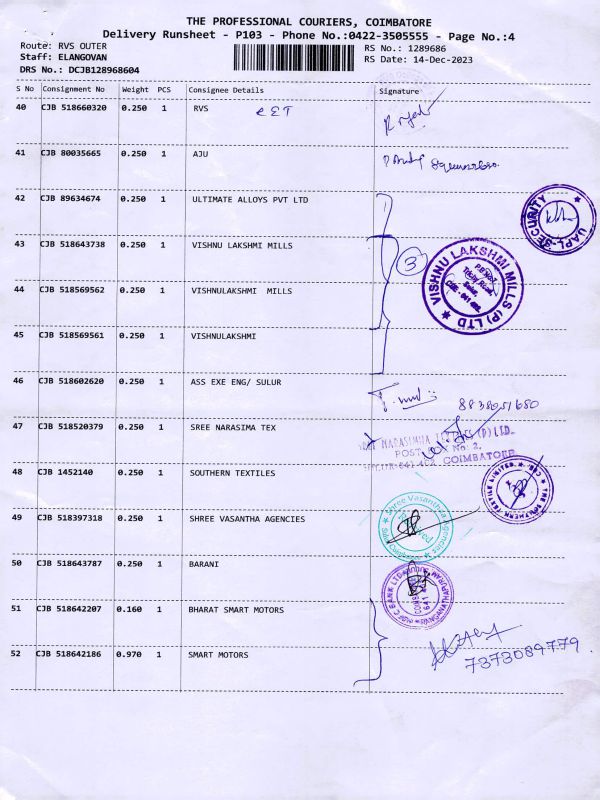 THE PROFESSIONAL COURIERS, COIMBATORE
Delivery Runsheet - P103 - Phone No.:0422-3505555 - Page No.:4
Route: RVS OUTER RS No.: 1289686
Staff: ELANGOVAN RS Date: 14-Dec-2023
DRS No.: DCJB128968604
S No Consignment No Weight PCS Consignee Details Signature
40 CJB 518660320 0.250 1 RVS CET
41 CJB 80035665 0.250 1 AJU
42 CJB 89634674 0.250 1 ULTIMATE ALLOYS PVT LTD
UAPL-SECURITY
43 CJB 518643738 0.250 1 VISHNU LAKSHMI MILLS 3
VISHNU LAKSHMI MILLS (P) LTD
44 CJB 518569562 0.250 1 VISHNULAKSHMI MILLS
45 CJB 518569561 0.250 1 VISHNULAKSHMI
46 CJB 518602620 0.250 1 ASS EXE ENG/ SULUR
8838051680
47 CJB 518520379 0.250 1 SREE NARASIMA TEX
NARASIMHA (P) LTD.
POST No. 2,
COIMBATORE
48 CJB 1452140 0.250 1 SOUTHERN TEXTILES
49 CJB 518397318 0.250 1 SHREE VASANTHA AGENCIES
Shree Vasantha Agencies
50 CJB 518643787 0.250 1 BARANI
51 CJB 518642207 0.160 1 BHARAT SMART MOTORS
52 CJB 518642186 0.970 1 SMART MOTORS
7373089779